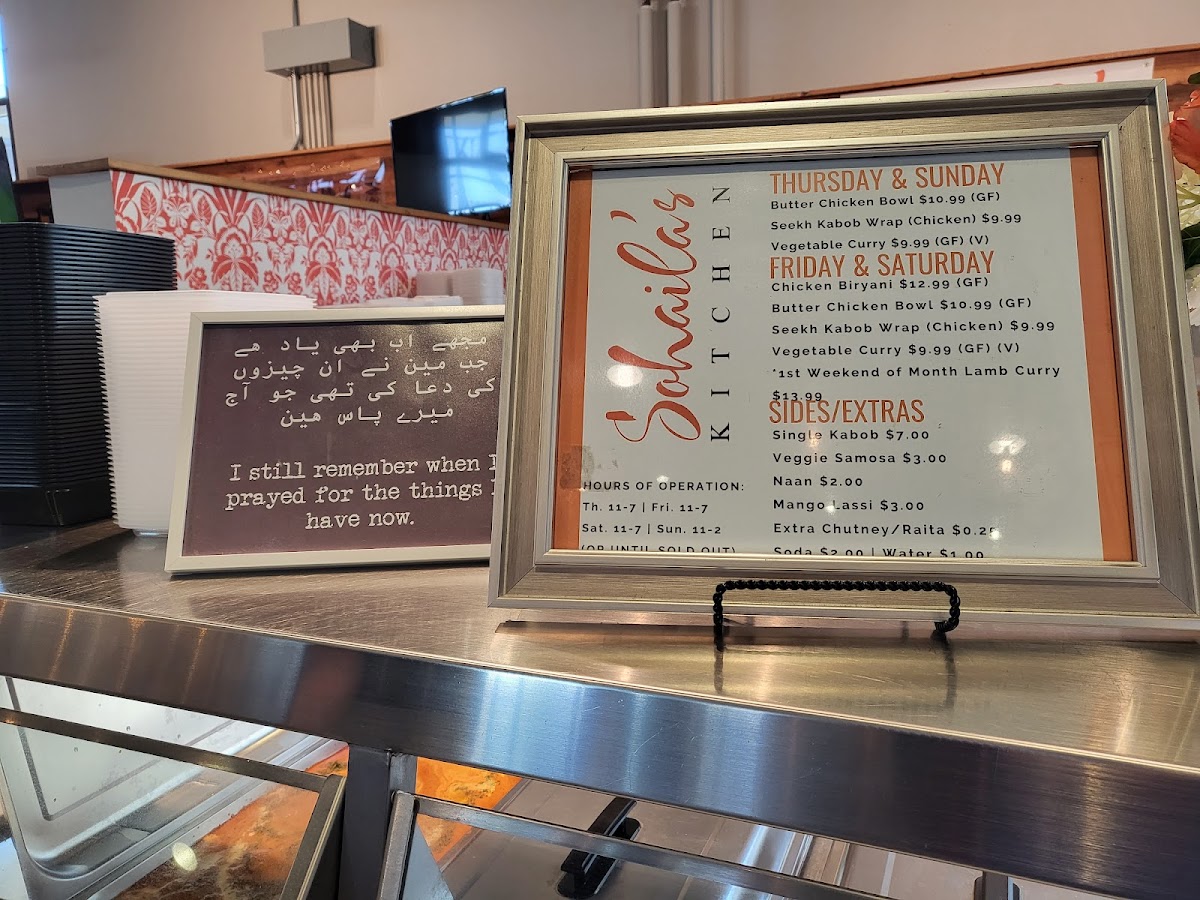 مجھے اب بھی یاد ھے
جب مین نے ان چیزوں
کی دعا کی تھی جو آج
میرے پاس ھین
I still remember when I
prayed for the things I
have now.
Sohaila's
KITCHEN
HOURS OF OPERATION:
Th. 11-7 | Fri. 11-7
Sat. 11-7 | Sun. 11-2
(OR UNTIL SOLD OUT)
THURSDAY & SUNDAY
Butter Chicken Bowl $10.99 (GF)
Seekh Kabob Wrap (Chicken) $9.99
Vegetable Curry $9.99 (GF) (V)
FRIDAY & SATURDAY
Chicken Biryani $12.99 (GF)
Butter Chicken Bowl $10.99 (GF)
Seekh Kabob Wrap (Chicken) $9.99
Vegetable Curry $9.99 (GF) (V)
*1st Weekend of Month Lamb Curry
$13.99
SIDES/EXTRAS
Single Kabob $7.00
Veggie Samosa $3.00
Naan $2.00
Mango Lassi $3.00
Extra Chutney/Raita $0.25
Soda $2.00 | Water $1.00